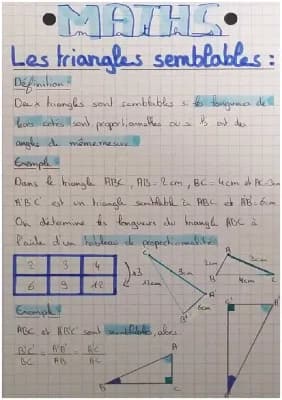 MATHS
Les triangles semblables :
Définition :
Deux triangles sont semblables si les longueurs de
leurs côtés sont proportionnelles ou s'ils ont des
angles de même mesure
Exemple
Dans le triangle ABC, AB = 2cm, BC = 4cm et AC = 3cm
A'B'C' est un triangle semblable à ABC et A'B' = 6cm
On détermine les longueurs du triangle ABC à
l'aide d'un tableau de proportionnalité
2 3 4
6 9 12
x3
C'
9cm
12cm
A'
6cm
B'
A
2cm
3cm
B
4cm
C
Exemple
ABC et A'B'C' sont semblables, alors
B'C'/BC = A'B'/AB = A'C'/AC
A
B
C
C'
A'
B'